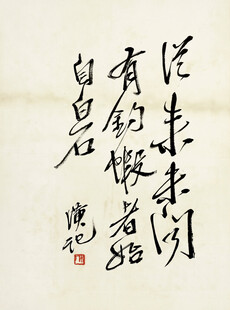 从来未闻
有钓虾者始
自白石
演记